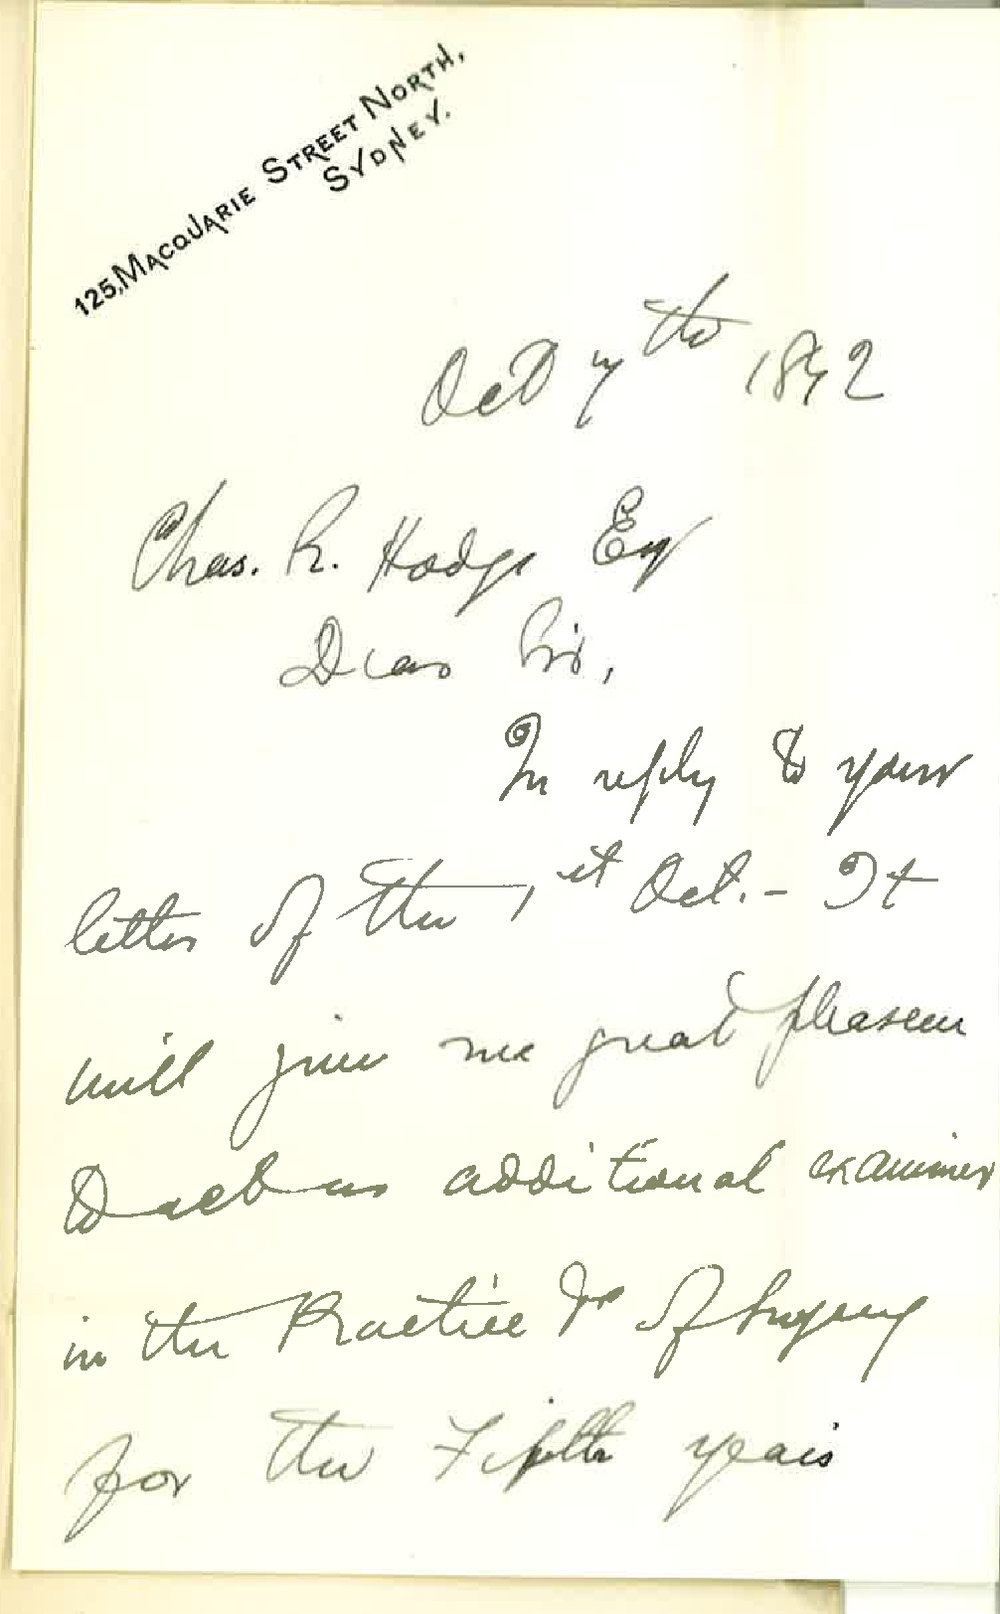 125, MACQUARIE STREET NORTH,
SYDNEY.
Oct 7th 1892
Chas. R. Hodge Esq
Dear Sir,
In reply to your
letter of the 1st Oct. - It
will give me great pleasure
to act as additional examiner
in the Practice &c of Surgery
for the Fifth years